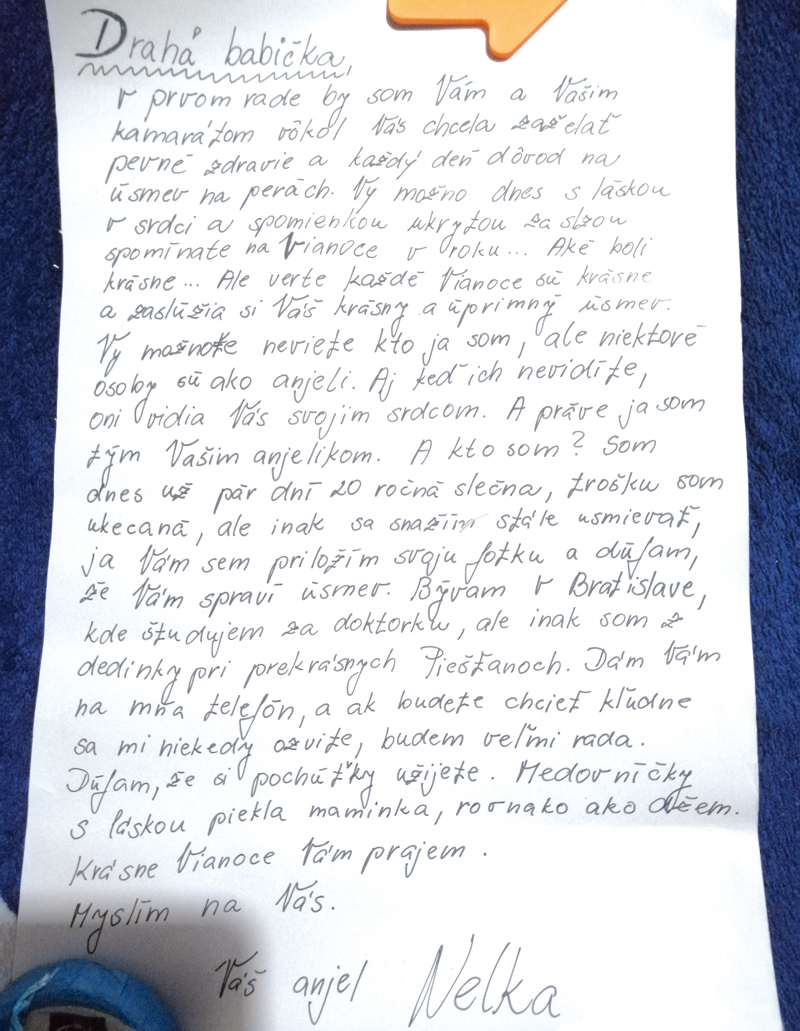 Drahá babička,
v prvom rade by som Vám a Vašim
kamarátom vôkol Vás chcela zaželať
pevné zdravie a každý deň dôvod na
úsmev na perách. Vy možno dnes s láskou
v srdci a spomienkou ukrytou za slzou
spomínate na Vianoce v roku... Aké boli
krásne... Ale verte každé Vianoce sú krásne
a zaslúžia si Váš krásny a úprimný úsmev.
Vy možnože neviete kto ja som, ale niektoré
osoby sú ako anjeli. Aj keď ich nevidíte,
oni vidia Vás svojim srdcom. A práve ja som
tým Vašim anjelikom. A kto som? Som
dnes už pár dní 20 ročná slečna, trošku som
ukecaná, ale inak sa snažím stále usmievať,
ja Vám sem priložím svoju fotku a dúfam,
že Vám spraví úsmev. Bývam v Bratislave,
kde študujem za doktorku, ale inak som z
dedinky pri prekrásnych Piešťanoch. Dám Vám
na mňa telefón, a ak budete chcieť kľudne
sa mi niekedy ozvite, budem veľmi rada.
Dúfam, že si pochúťky užijete. Medovníčky
s láskou piekla maminka, rovnako ako džem.
Krásne Vianoce Vám prajem.
Myslím na Vás.
Váš anjel Nelka